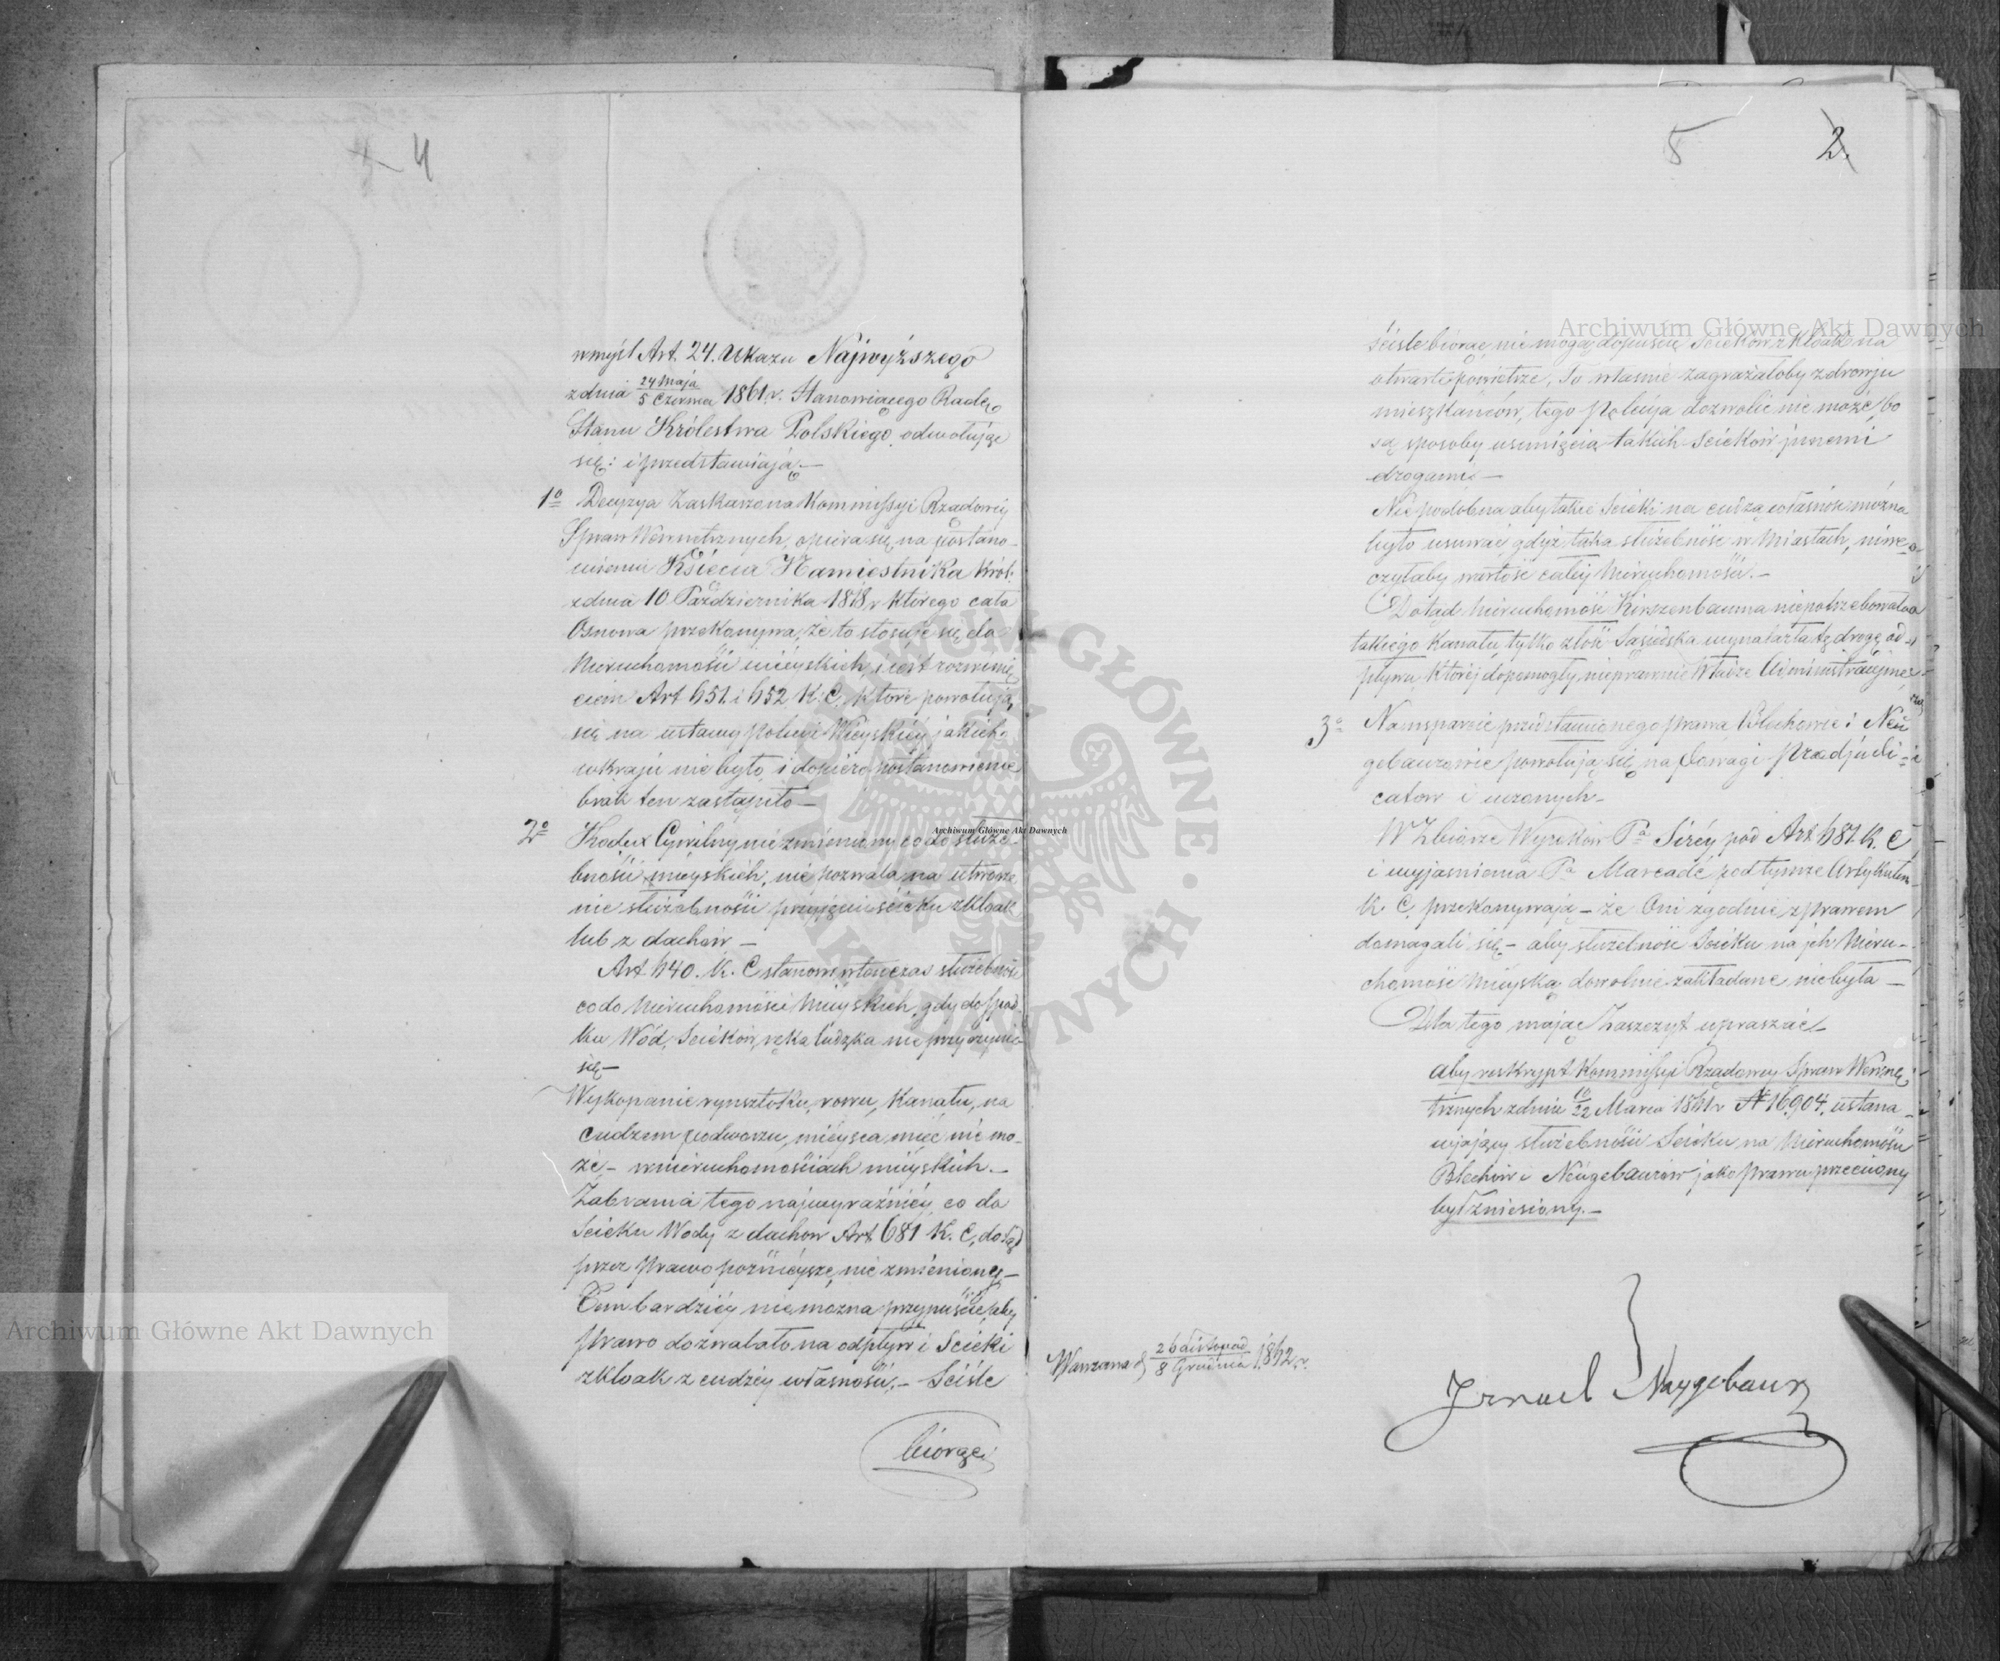 4
w myśl Art. 24. Ukazu Najwyższego
z dnia 24 Maja / 5 Czerwca 1861 r. Stanowiącego Radę
Stanu Królestwa Polskiego, odwołując
się: i przedstawiają:—
1o Decyzya Zaskarzona Kommissyi Rządowéj
Spraw Wewnętrznych, opiera się na postano-
wieniu Księcia Namiestnika Król:
z dnia 10 Października 1818 r którego cała
Osnowa przekonywa, że to stosuje się do
Nieruchomości wiéyskich, i jest rozwinię
ciem Art 651 i 652 K. C. które powołują
się na ustawy policyi Wiéyskiéy jakich
w kraju nie było, i dopiero postanowienie
brak ten zastąpiło —
2o Kodex Cywilny nie zmieniony co do służe-
bności miéyskich, nie pozwala na utworze
nie służebności przyjęcia ścieku z kloak
lub z dachów —
Art 640. K. C stanowi wtenczas służebność
co do Nieruchomości Miéyskich, gdy do spad-
ku Wód, Scieków, ręka ludzka nie przyczynia
się —
Wykopanie rynsztoku, rowu, Kanału, na
cudzem podworzu, miéysca miéć nie mo-
że — w nieruchomościach miéyskich. —
Zabrania tego najwyraźniéy co do
Scieku Wody z dachów Art 681 K. C, dotąd
przez prawo pożniéysze, nie zmieniony —
Tem bardziéy nie można przypuścić, aby
prawo dozwalało na odpływ i Scieki
z kloak z cudzéy własności. — Sciśle
biorąc
5 2.
ściśle biorąc, nie mogą dopuścić Scieków z kloak na
otwarte powietrze, To właśnie zagrażałoby zdrowju
mieszkańców, tego Policya dozwolić nie może, bo
są sposoby usunięcia takich Scieków innemi
drogami —
Niepodobna aby takie Scieki na cudzą własność można
było usuwać, gdyż taka służebność w Miastach, niwe-
czyłaby wartość całéy Nieruchomości. —
Dotąd Nieruchomość Kirszenbauma niepotrzebowała
takiego Kanału, tylko złość Sąsiedzka wynalazła tę drogę od-
pływu, któréj dopomogły nieprawnie Władze Administracyjne
3o Na wsparcie przedstawionego prawa Blechowie i Neu
gebaurowie powołują się na powagi Praejudi-
catów i uczonych —
W Zbiorze Wyroków Pa Siréy pod Art 681 K. C
i wyjaśnienia Pa Marcadé pod tymże Artykułem
K. C. przekonywają — że Oni zgodnie z prawem
domagali się — aby służebność Scieku na ich Nieru-
chomość Miéyską, dowolnie zakładane nie była —
Dla tego mając Zaszczyt upraszać
aby reskrypt Kommissyi Rządowéy Spraw Wewnę
trznych z dnia 10/22 Marca 1861 r No 16,904, ustana-
wjający służebności Scieku na Nieruchomości
Blechów i Neugebaurów jako prawu przeciwny
był zniesiony. —
Warszawa d 26 Listopad / 8 Grudnia 1862 r.
Izrael Naygebaur
Archiwum Główne Akt Dawnych
Archiwum Główne Akt Dawnych
Archiwum Główne Akt Dawnych
ARCHIWUM GŁÓWNE AKT DAWNYCH